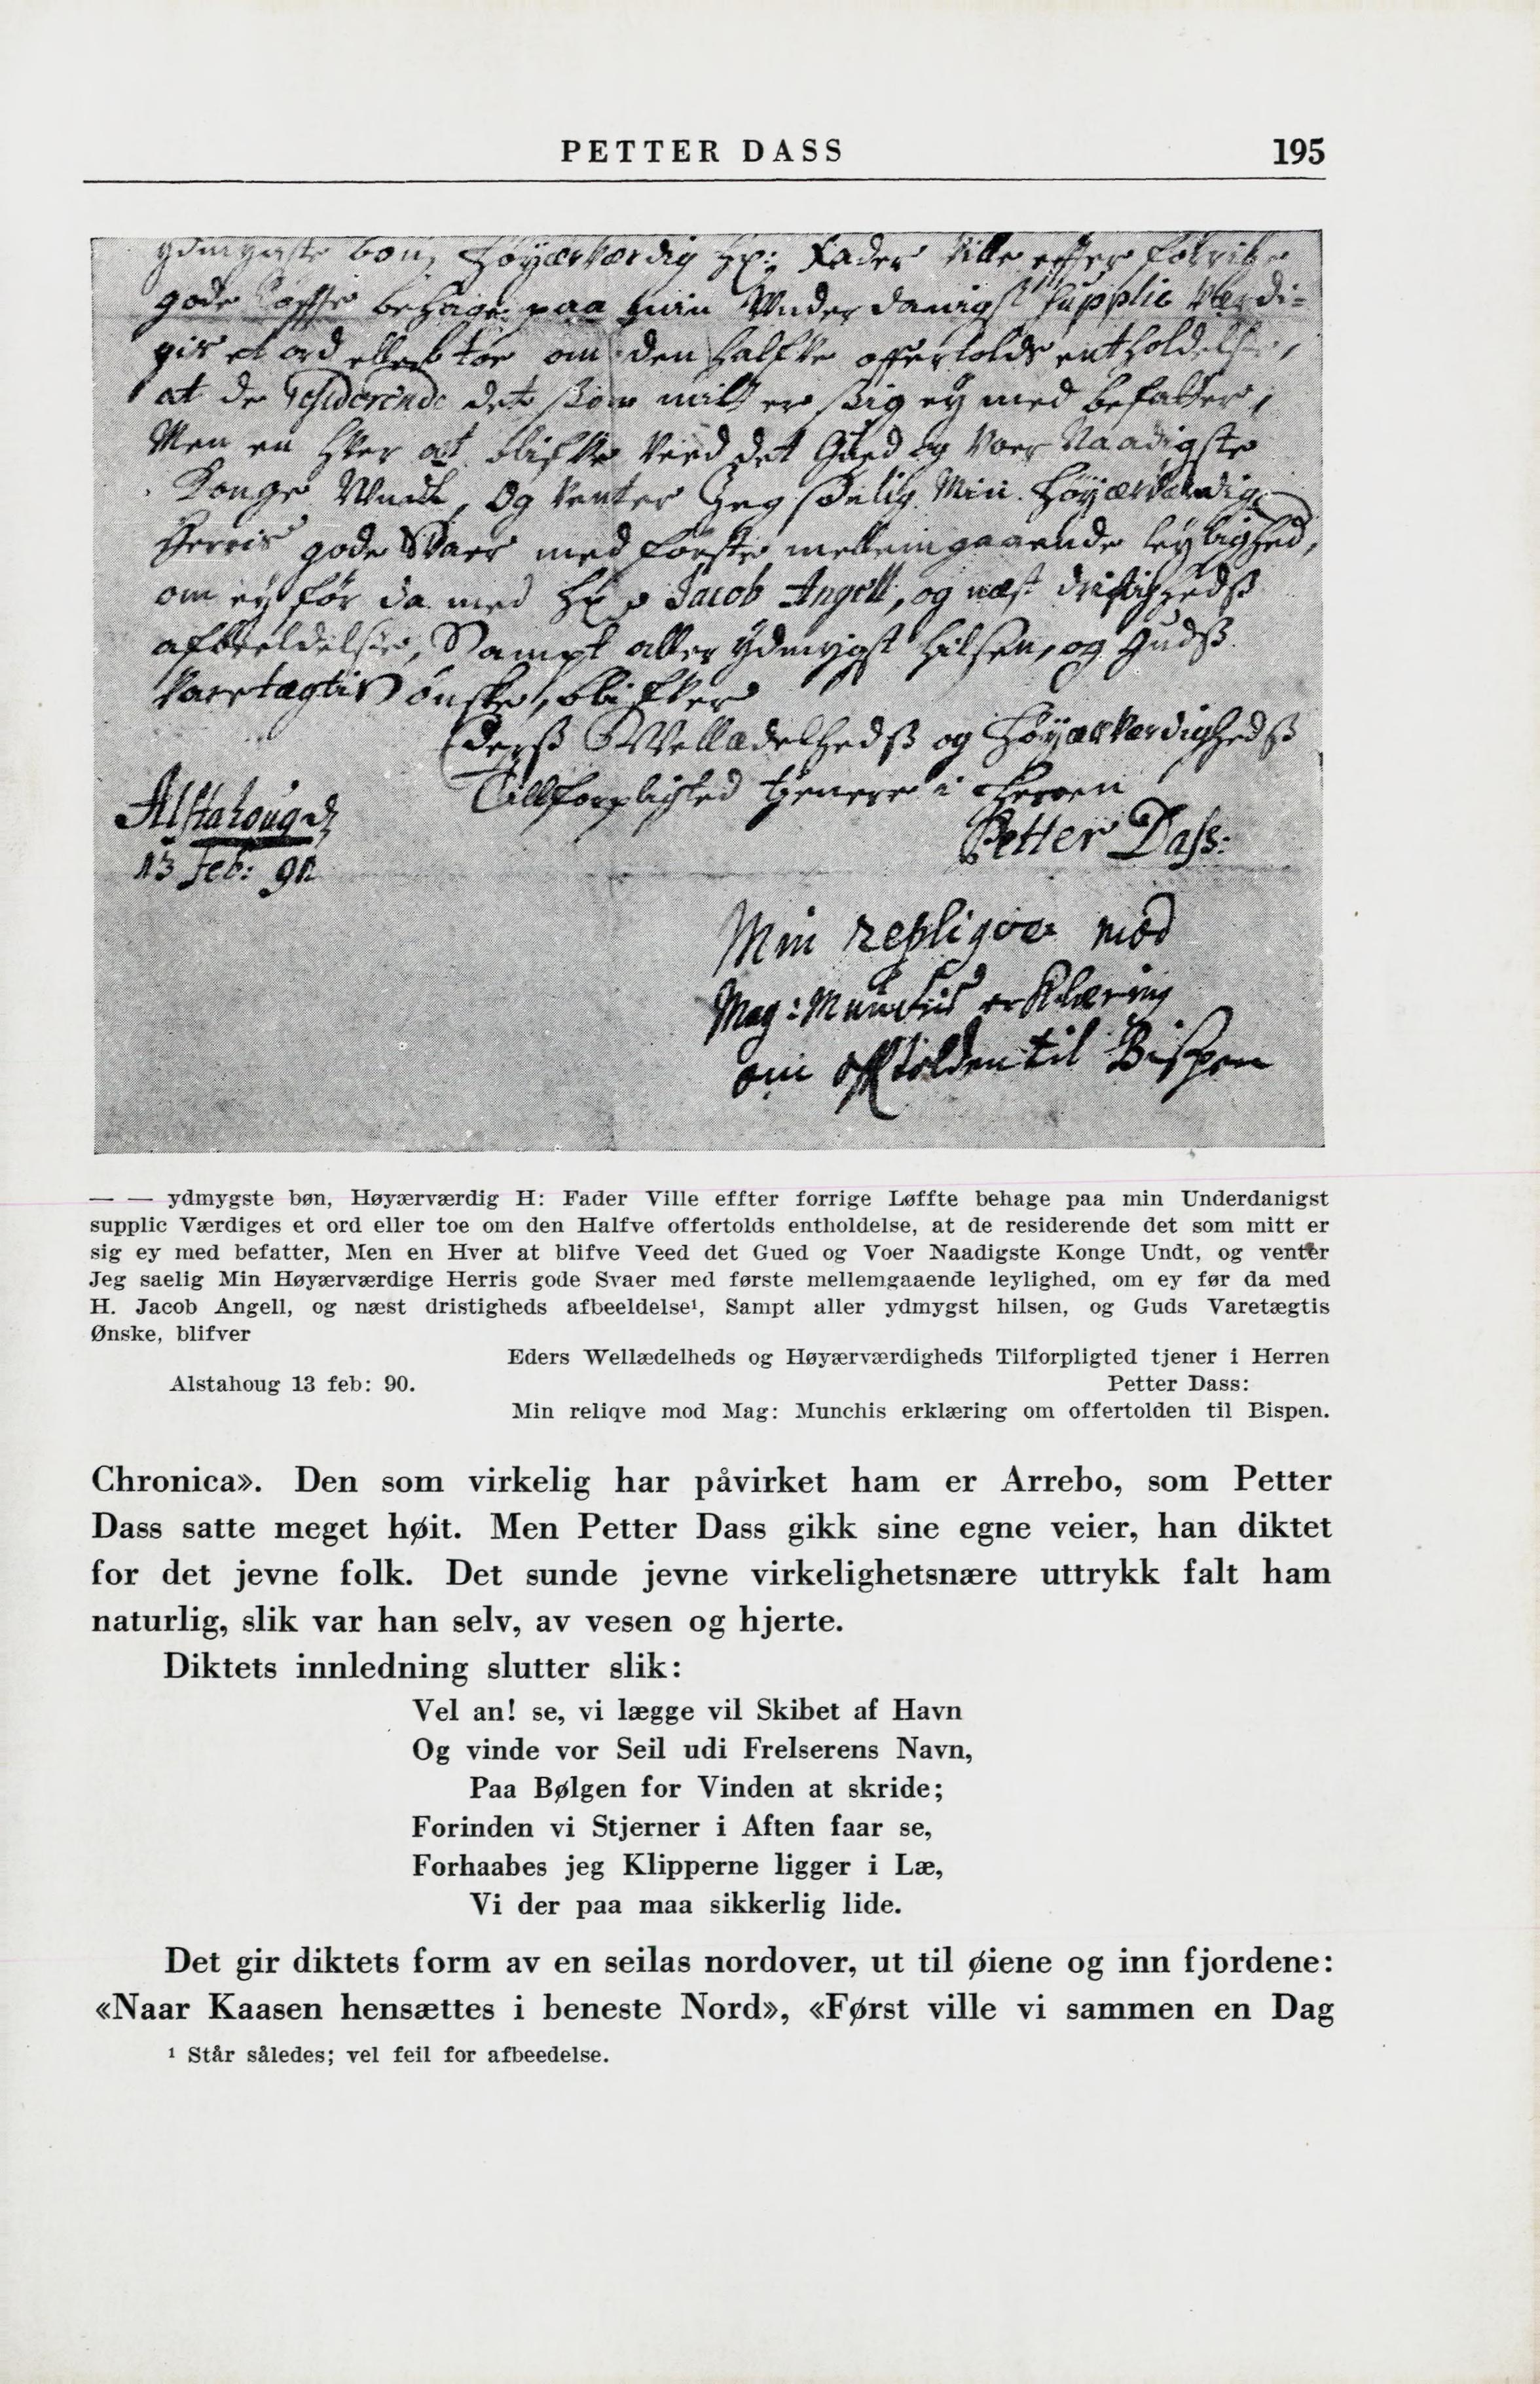 PETTER DASS 195
ydmygste bon, Høyærværdig H: Fader Ville effter forrige
gode Løffte behage paa min Underdanigst supplic Værdi-
gis et ord eller toe om den halfve offertolds entholdelse,
at de residerende det som mitt er sig ey med befatter,
Men en hver at blifve Veed det Gued og Voer Naadigste
Konge Undt, Og Venter Jeg Min Høyærværdige
Herris gode Svaer med førstte mellemgaaende leylighed,
om ey før da med H: Jacob Angell, og næst dristighedß
afbeeldelse, Sampt aller ydmygst hilsen, og Gudß
Varetægtis ønske, blifver
Ederß Wellædelhedß og Høyærværdighedß
Tilforpligted tjenere i Herren
Alstahoug
13 feb: 90
Petter Dass:
Min repliqve mod
Mag: Munchis erklæring
om offtolden til Bispen
— — ydmygste bøn, Høyærværdig H: Fader Ville effter forrige Løffte behage paa min Underdanigst
supplic Værdiges et ord eller toe om den Halfve offertolds entholdelse, at de residerende det som mitt er
sig ey med befatter, Men en Hver at blifve Veed det Gued og Voer Naadigste Konge Undt, og venter
Jeg saelig Min Høyærværdige Herris gode Svaer med første mellemgaaende leylighed, om ey før da med
H. Jacob Angell, og næst dristigheds afbeeldelse¹, Sampt aller ydmygst hilsen, og Guds Varetægtis
Ønske, blifver
Eders Wellædelheds og Høyærværdigheds Tilforpligted tjener i Herren
Alstahoug 13 feb: 90. Petter Dass:
Min reliqve mod Mag: Munchis erklæring om offertolden til Bispen.
Chronica». Den som virkelig har påvirket ham er Arrebo, som Petter
Dass satte meget høit. Men Petter Dass gikk sine egne veier, han diktet
for det jevne folk. Det sunde jevne virkelighetsnære uttrykk falt ham
naturlig, slik var han selv, av vesen og hjerte.
Diktets innledning slutter slik:
Vel an! se, vi lægge vil Skibet af Havn
Og vinde vor Seil udi Frelserens Navn,
Paa Bølgen for Vinden at skride;
Forinden vi Stjerner i Aften faar se,
Forhaabes jeg Klipperne ligger i Læ,
Vi der paa maa sikkerlig lide.
Det gir diktets form av en seilas nordover, ut til øiene og inn fjordene:
«Naar Kaasen hensættes i beneste Nord», «Først ville vi sammen en Dag
¹ Står således; vel feil for afbeedelse.